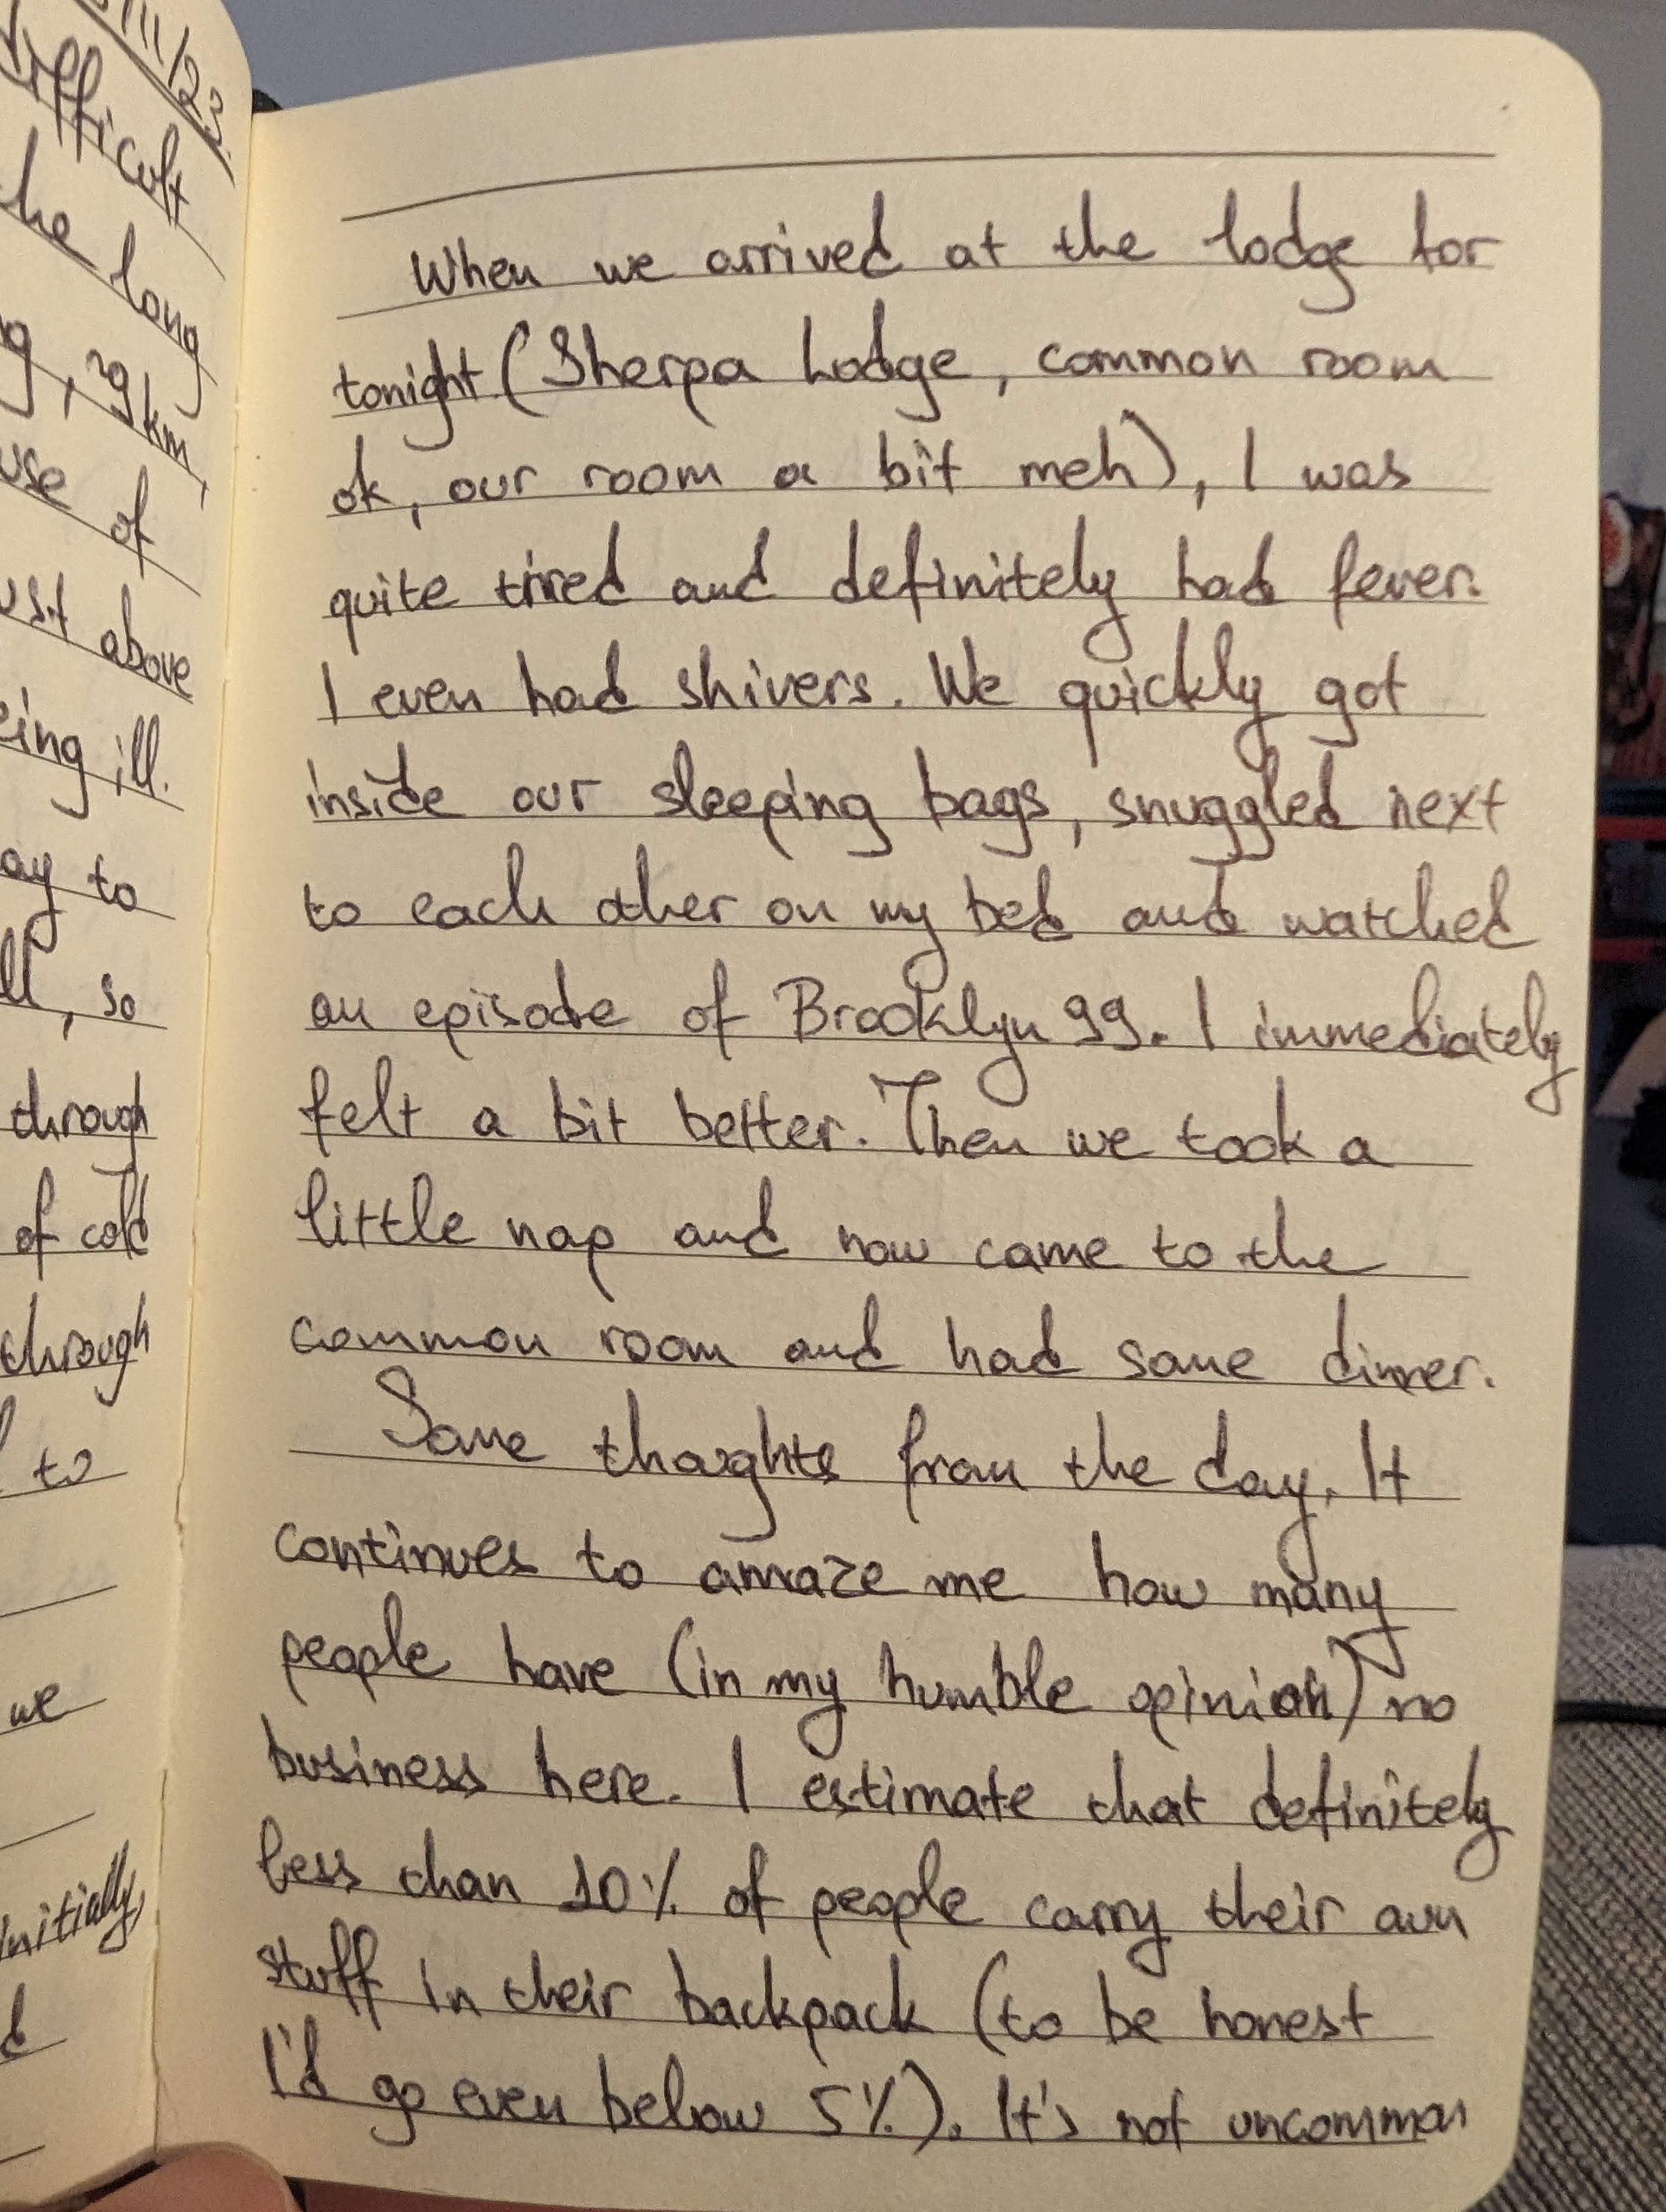 /11/23.
difficult
he long
g, 29km,
use of
ust above
eing ill.
ay to
ll, so
through
of cold
through
to
we
initially,
d
When we arrived at the lodge for
tonight (Sherpa Lodge, common room
ok, our room a bit meh), I was
quite tired and definitely had fever.
I even had shivers. We quickly got
inside our sleeping bags, snuggled next
to each other on my bed and watched
an episode of Brooklyn 99. I immediately
felt a bit better. Then we took a
little nap and now came to the
common room and had some dinner.
Some thoughts from the day. It
continues to amaze me how many
people have (in my humble opinion) no
business here. I estimate that definitely
less than 10% of people carry their own
stuff in their backpack (to be honest
I'd go even below 5%). It's not uncommon